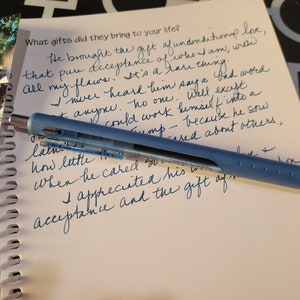 What gifts did they bring to your life?
He brought the gift of unconditional love,
that pure acceptance of who I am, with
all my flaws. It's a rare thing
I never heard him say a bad word
anyone. no one. Well except
could work himself into a
because he saw
how little about others,
when he cared so
I appreciated his
acceptance and the gift of